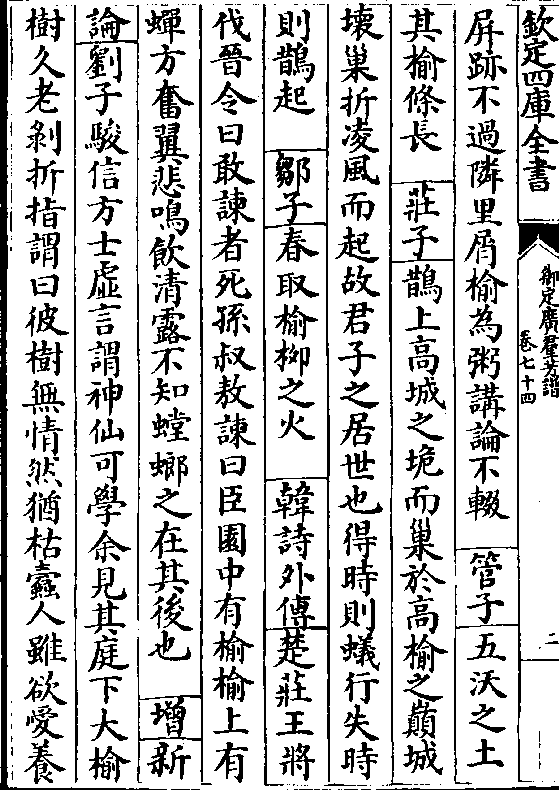 欽定四庫全書
御定廣羣芳譜
卷七十四
二
屏跡不過隣里屑榆為粥講論不輟 管子 五沃之土
其榆條長 莊子 鵲上高城之垝而巢於高榆之巔城
壞巢折凌風而起故君子之居世也得時則蟻行失時
則鵲起 鄒子 春取榆柳之火 韓詩外傳 楚莊王將
伐晉令曰敢諫者死孫叔敖諫曰臣園中有榆榆上有
蟬方奮翼悲鳴飲清露不知螳螂之在其後也 增 新
論 劉子駿信方士虛言謂神仙可學余見其庭下大榆
樹久老剝折指謂曰彼樹無情然猶枯蠹人雖欲愛養